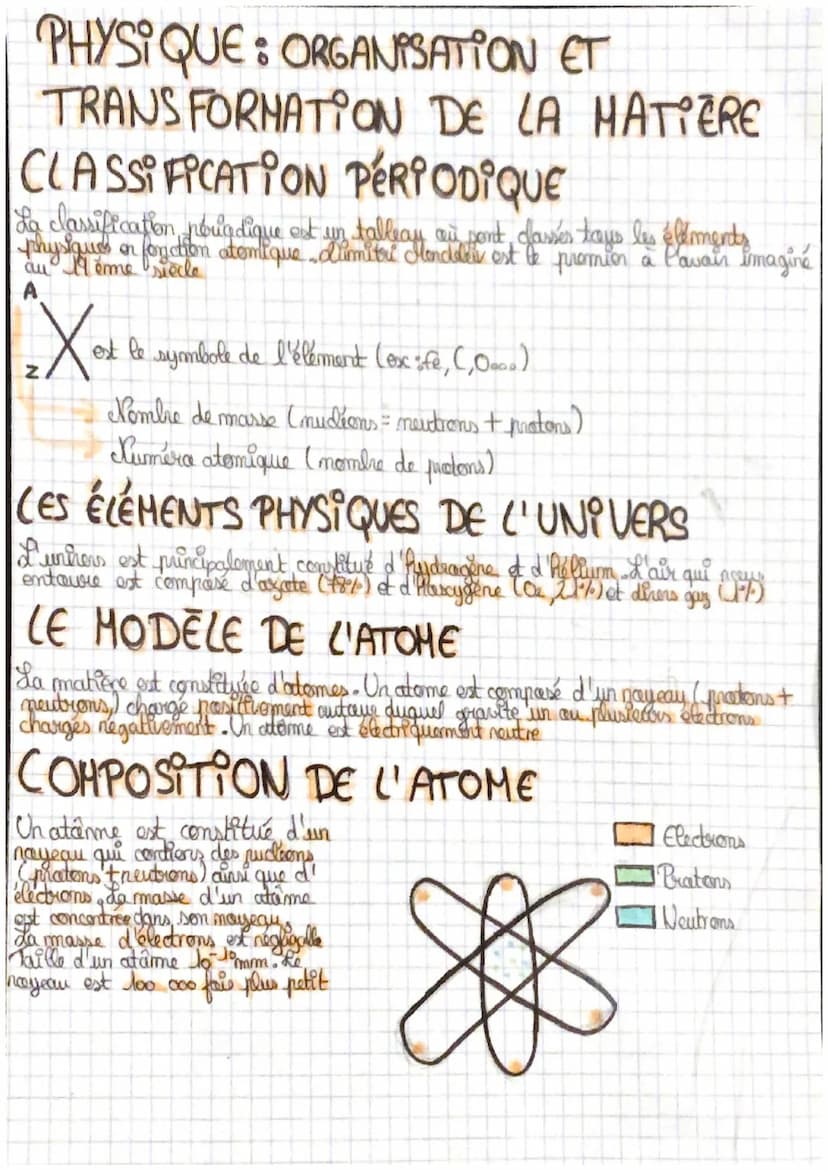 PHYSIQUE : ORGANISATION ET
TRANSFORMATION DE LA MATIÈRE
CLASSIFICATION PÉRIODIQUE
La classification périodique est un tableau où sont classés tous les éléments
physiques en fonction atomique. Dimitri Mendeleiv est le premier à l'avoir imaginé
au 19ème siècle
A
X est le symbole de l'élément (ex : fe, C, O...)
Z
Nombre de masse (nucléons = neutrons + protons)
Numéro atomique (nombre de protons)
LES ÉLÉMENTS PHYSIQUES DE L'UNIVERS
L'univers est principalement constitué d'hydrogène et d'Hélium. L'air qui nous
entoure est composé d'azote (78%) et d'dioxygène (O2, 21%) et divers gaz (1%)
LE MODÈLE DE L'ATOME
La matière est constituée d'atomes. Un atome est composé d'un noyeau (protons +
neutrons) chargé positivement autour duquel gravite un ou plusieurs électrons
chargés négativement. Un atôme est électriquement neutre
COMPOSITION DE L'ATOME
Un atôme est constitué d'un
noyeau qui contient des nucléons
(protons + neutrons) ainsi que d'
électrons, La masse d'un atôme
est concentrée dans son noyeau.
La masse d'électrons est négligable
Taille d'un atôme 10⁻¹⁰mm. Le
noyeau est 100 000 fois plus petit
Electrons
Protons
Neutrons